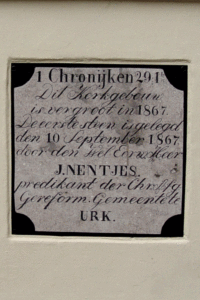 1 Chronijken 29:1b
Dit Kerkgebouw
is vergroot in 1867.
De eerste steen is gelegd
den 10 September 1867
door den Wel Eerw. Heer
J. NENTJES.
predikant der Chr. Afg
Gereform. Gemeente te
URK.